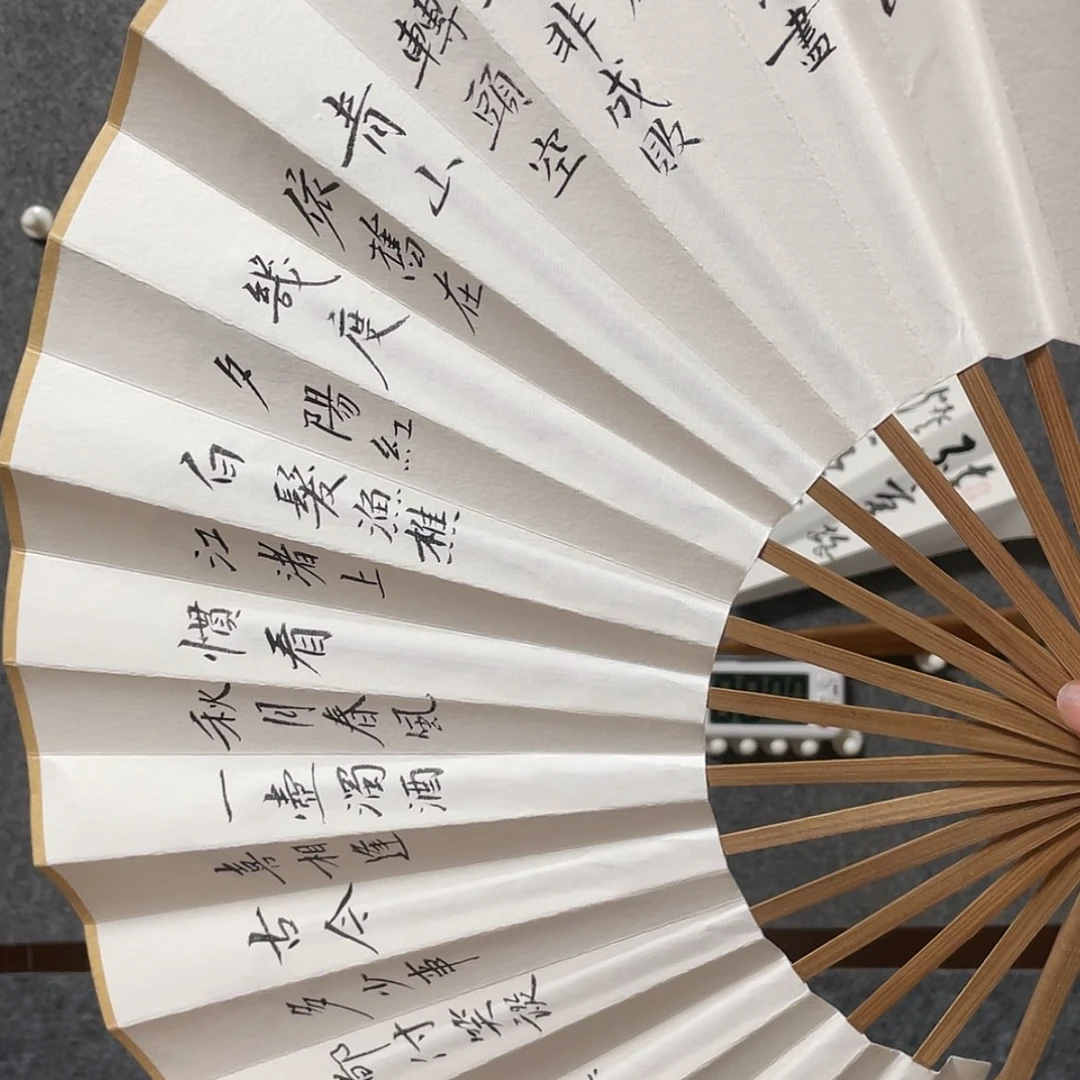 盡
非成敗
轉頭空
青山
依舊在
幾度
夕陽紅
白髮漁樵
江渚上
慣看
秋月春風
一壺濁酒
喜相逢
古今
多少事
都付笑談